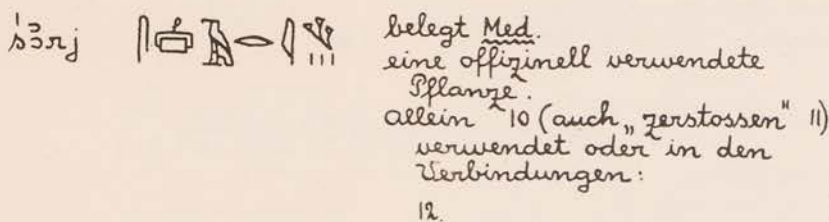 śꜣrj belegt Med.
eine offizinell verwendete
Pflanze.
allein 10 (auch „zerstossen" 11)
verwendet oder in den
Verbindungen:
12.